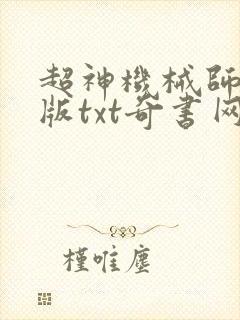 超神機械師
版txt奇書网
槿唯塵